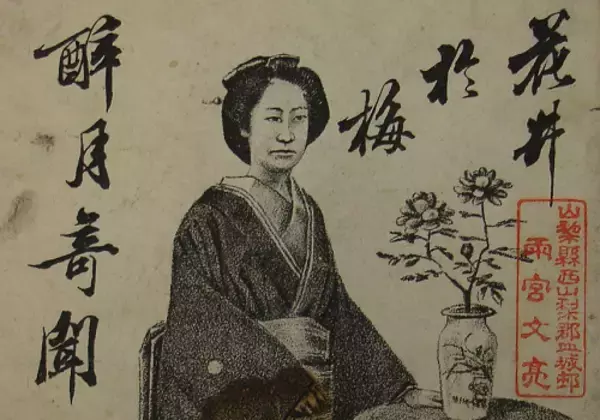 花井
於
梅
酔月竒聞
山梨縣西山梨郡
雨宮文亮